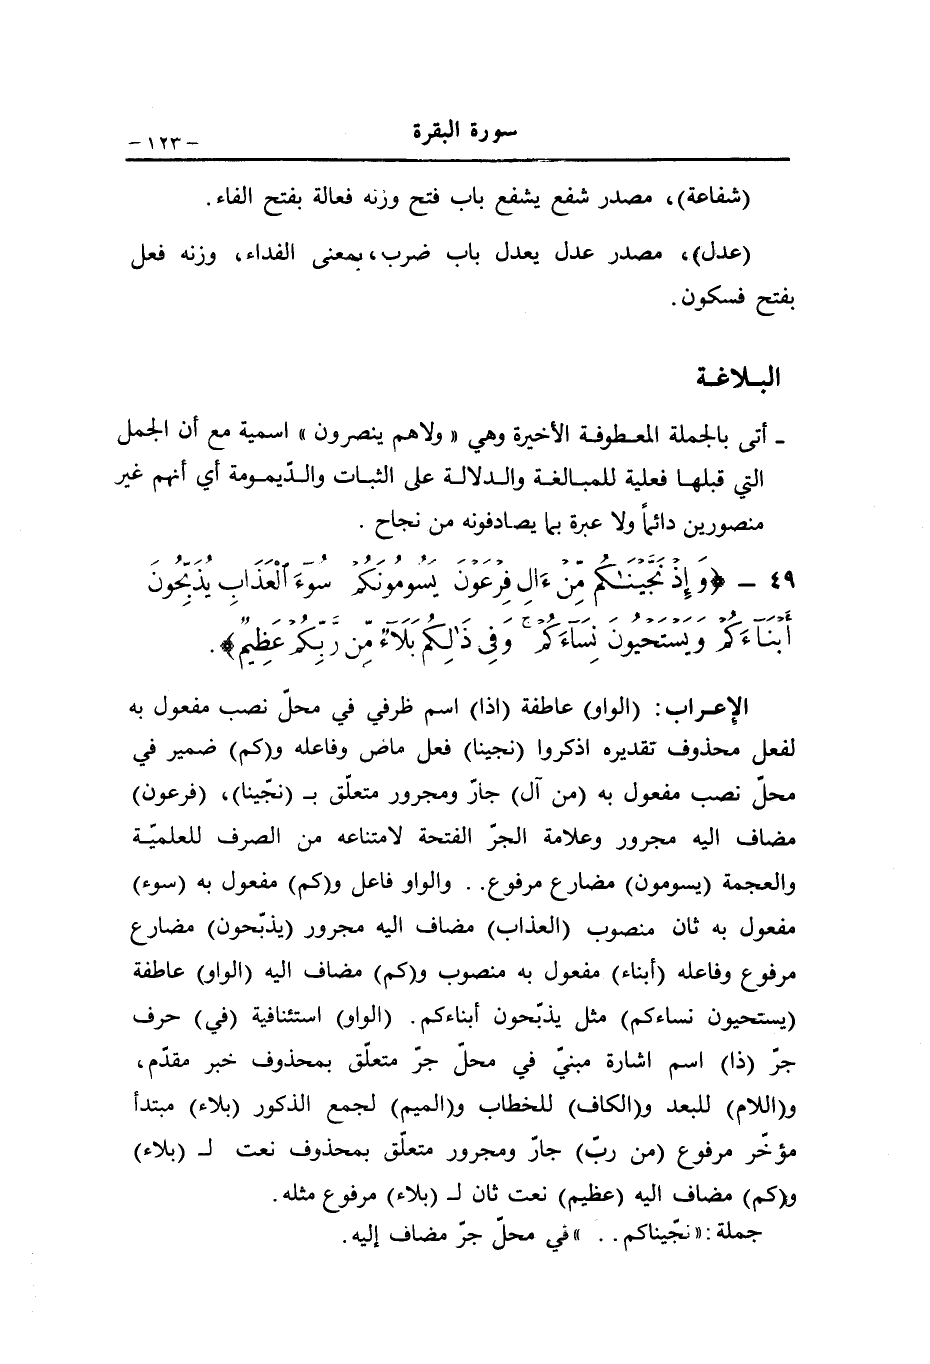 سورة البقرة
- ١٢٣ -
(شفاعة)، مصدر شفع يشفع باب فتح وزنه فعالة بفتح الفاء.
(عدل)، مصدر عدل يعدل باب ضرب، بمعنى الفداء، وزنه فعل
بفتح فسكون.
البلاغة
- أتى بالجملة المعطوفة الأخيرة وهي « ولاهم ينصرون » اسمية مع أن الجمل
التي قبلها فعلية للمبالغة والدلالة على الثبات والدّيمومة أي أنهم غير
منصورين دائماً ولا عبرة بما يصادفونه من نجاح .
٤٩ - ﴿وَإِذْ نَجَّيْنَـٰكُم مِّنْ ءَالِ فِرْعَوْنَ يَسُومُونَكُمْ سُوٓءَ ٱلْعَذَابِ يُذَبِّحُونَ
أَبْنَآءَكُمْ وَيَسْتَحْيُونَ نِسَآءَكُمْ ۚ وَفِى ذَٰلِكُم بَلَآءٌ مِّن رَّبِّكُمْ عَظِيمٌ﴾.
الإعراب: (الواو) عاطفة (اذا) اسم ظرفي في محلّ نصب مفعول به
لفعل محذوف تقديره اذكروا (نجينا) فعل ماض وفاعله و(كم) ضمير في
محلّ نصب مفعول به (من آل) جارّ ومجرور متعلّق بـ (نجّينا)، (فرعون)
مضاف اليه مجرور وعلامة الجرّ الفتحة لامتناعه من الصرف للعلميّة
والعجمة (يسومون) مضارع مرفوع.. والواو فاعل و(كم) مفعول به (سوء)
مفعول به ثان منصوب (العذاب) مضاف اليه مجرور (يذبّحون) مضارع
مرفوع وفاعله (أبناء) مفعول به منصوب و(كم) مضاف اليه (الواو) عاطفة
(يستحيون نساءكم) مثل يذبّحون أبناءكم. (الواو) استئنافية (في) حرف
جرّ (ذا) اسم اشارة مبنيّ في محلّ جرّ متعلّق بمحذوف خبر مقدّم،
و(اللام) للبعد و(الكاف) للخطاب و(الميم) لجمع الذكور (بلاء) مبتدأ
مؤخّر مرفوع (من ربّ) جارّ ومجرور متعلّق بمحذوف نعت لـ (بلاء)
و(كم) مضاف اليه (عظيم) نعت ثان لـ (بلاء) مرفوع مثله.
جملة: « نجّيناكم.. » في محلّ جرّ مضاف إليه.